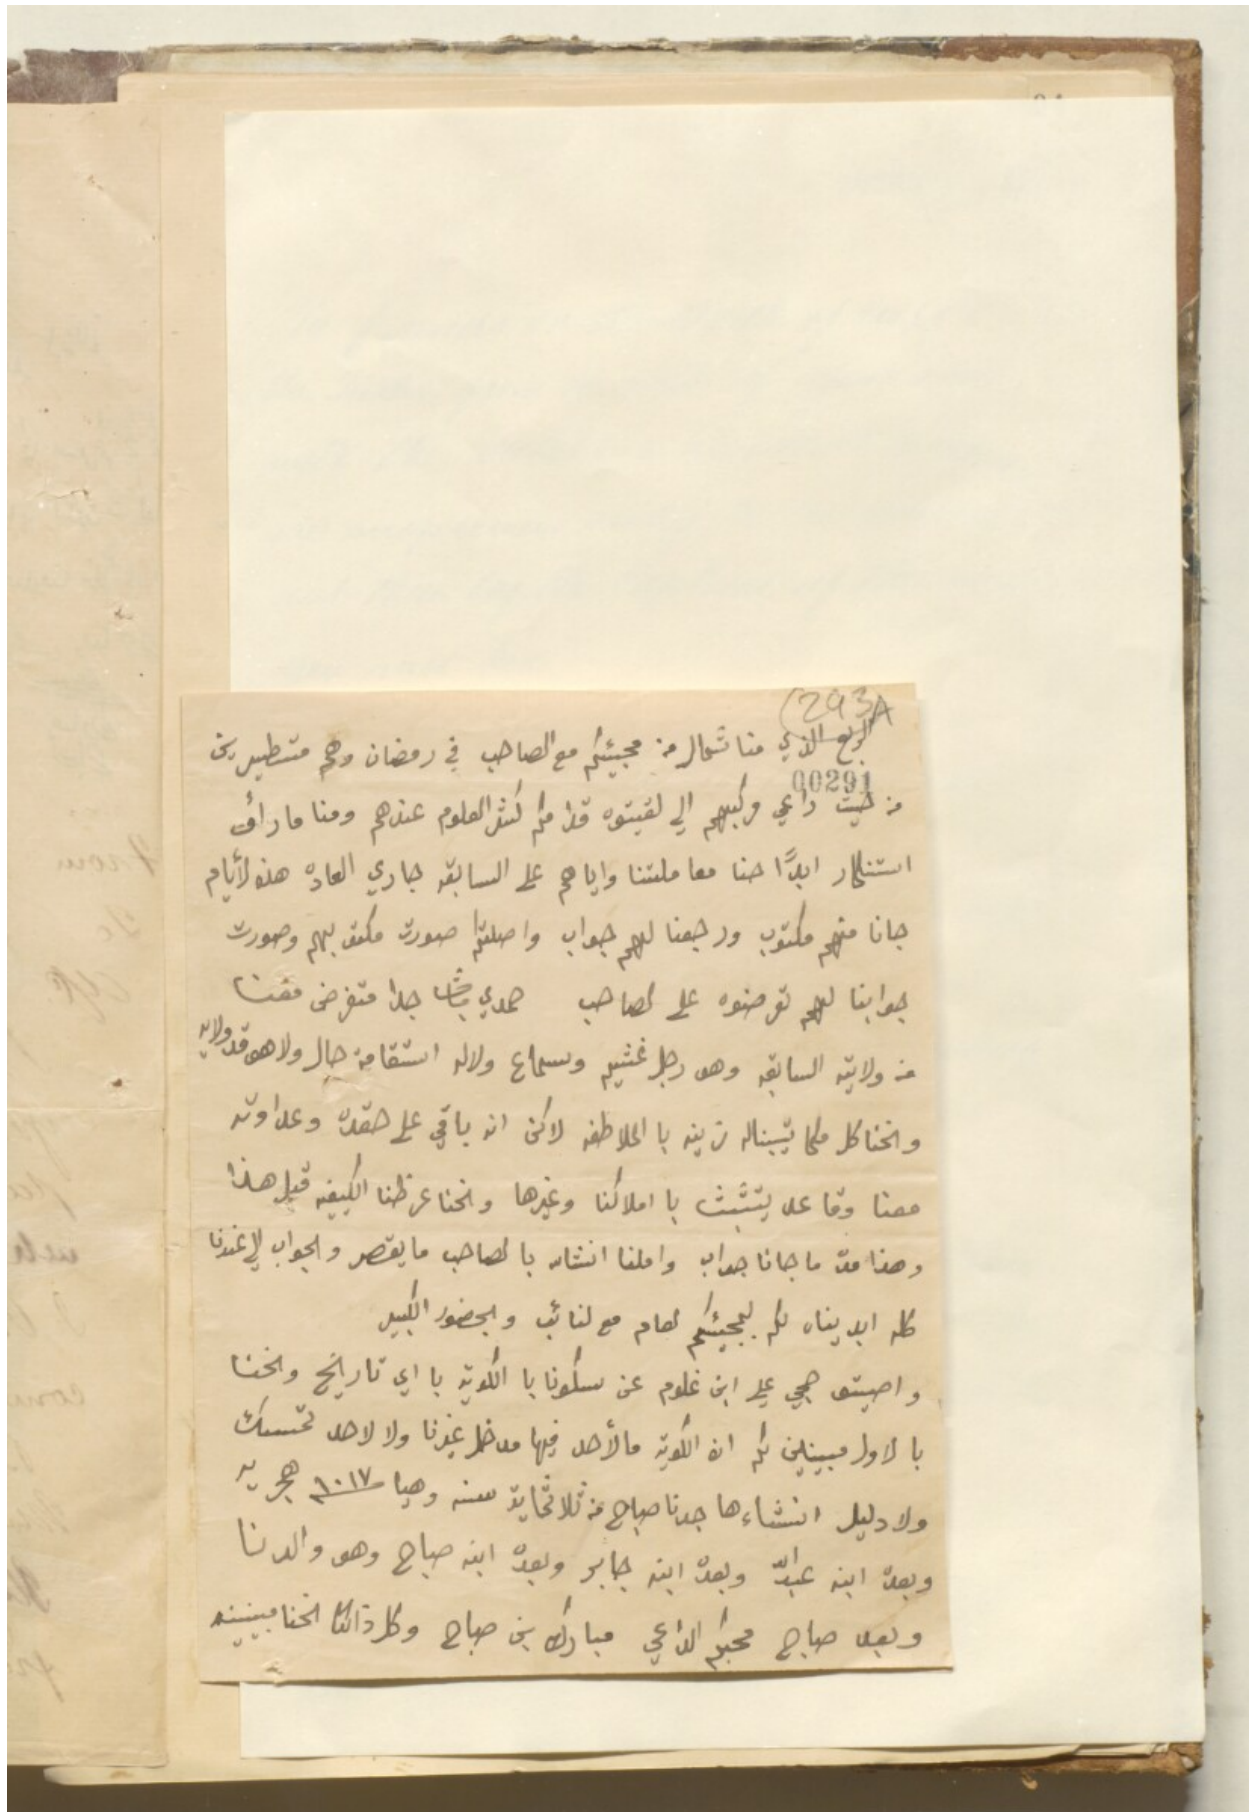 (293A
الربع الذي منا شمال من مجيئكم مع الصاحب في رمضان وهم متطيرين
00291
من حيث داعي مركبهم الي لقيتوه قدامكم كثر العلوم عندهم ومنا ما رأو
استنكار ابدًا حنا معاملتنا واياهم على السابقه جاري العاده هذه الأيام
جانا منهم مكتوب ورجعنا لهم جواب واصلتكم صورت مكتوبهم وصورت
جوابنا لهم تعرضوه على الصاحب حمدي باشا جدا متغرض معنا
من ولايته السابقه وهو رجل غشيم وسماع ولاله استقامة حال ولا هو قد ولايه
واحنا كل ما تسبناله زينه با الملاطفه لاكن انه باقي على حقده وعداوته
معنا وقاعد يتشبث با املاكنا وغيرها واحنا عرظنا الكيفيه قبل هذا
وهذا مدّ ما جانا جواب واملنا انشاء با الصاحب ما يقصر والجواب الي عندنا
كله ابديناه لكم بمجيئكم لعام مع لنائب وبحضور الكبير
واصيتو حجي علي ابن غلوم عن سكونا با الكويت با اي تاريخ واحنا
با لاول مبينين لكم ان الكويت ما لأحد فيها مدخل غيرنا ولا لاحد تمسك
ولا دليل انشاءها جدنا صباح من ثلاثماية سنه وهيا ١٠١٧ هجريه
وبعده ابنه عبدالله وبعده ابنه جابر وبعده ابنه صباح وهو والدنا
وبعد صباح محبكم الداعي مبارك بن صباح وكل ذالك احنا مبينينه